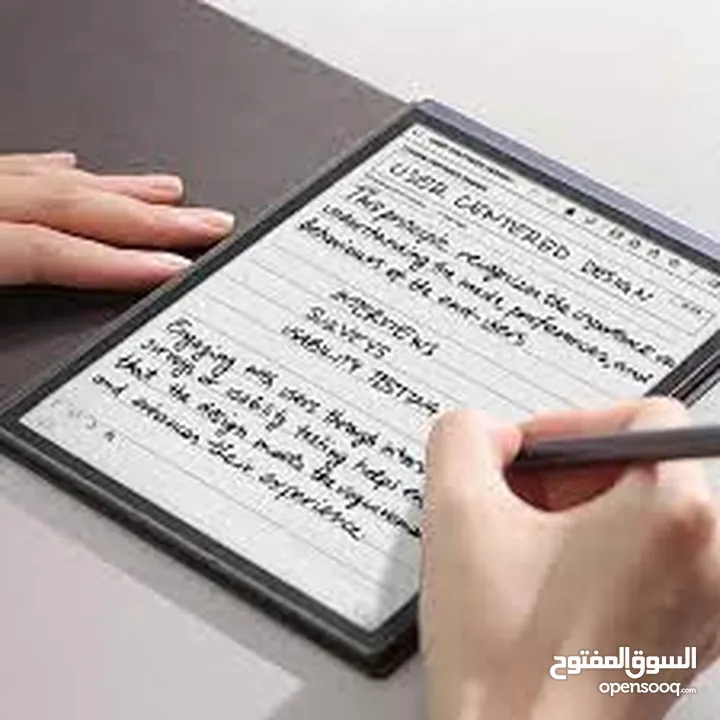 USER CENTERED DESIGN
This principle recognizes the importance
understanding the needs, preferences, and
behaviours of the end-users.
INTERVIEWS
SURVEYS
USABILITY TESTING
Engaging with users through
surveys or usability testing helps
that the design meets the requirements
and enhances their experience.
السوق المفتوح
opensooq.com